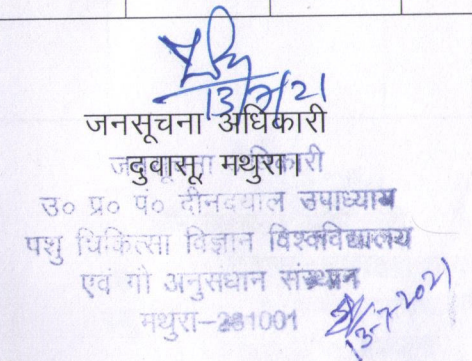 13/7/21
जनसूचना अधिकारी
दुवासू, मथुरा।
जनसूचना अधिकारी
उ० प्र० पं० दीनदयाल उपाध्याय
पशु चिकित्सा विज्ञान विश्वविद्यालय
एवं गौ अनुसंधान संस्थान
मथुरा-281001
13-7-2021